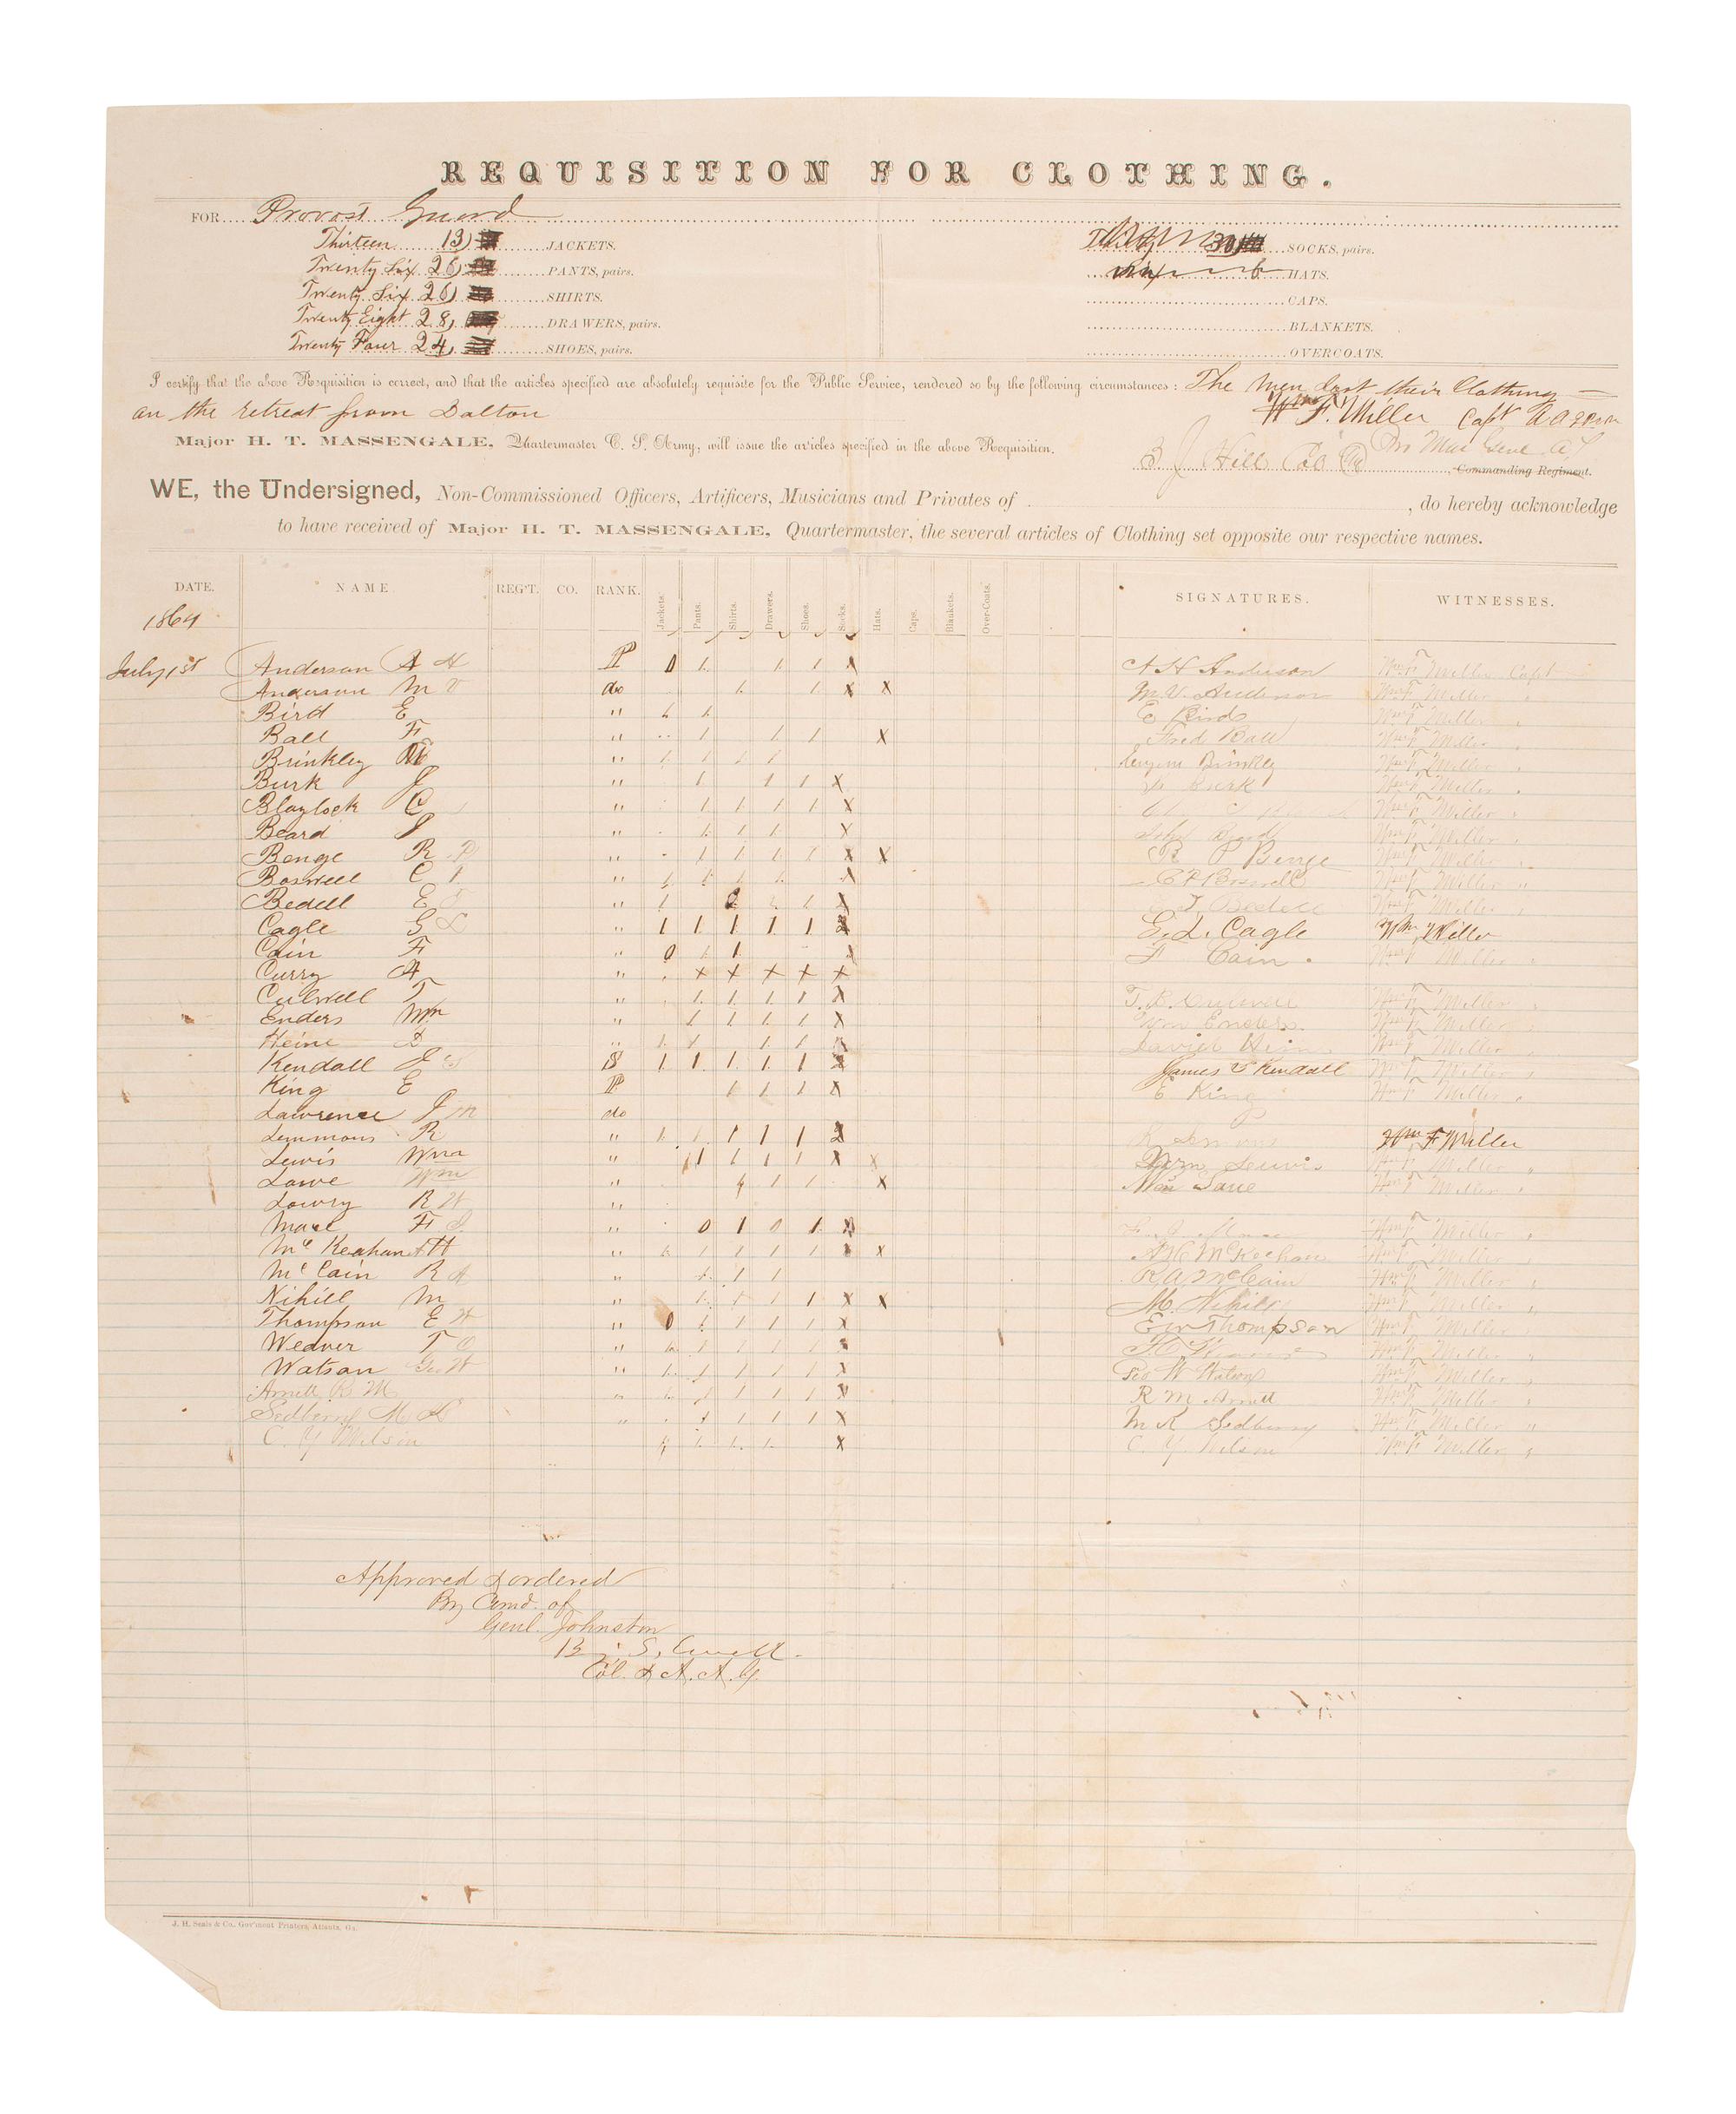 REQUISITION FOR CLOTHING.
FOR Provost Guard
Thirteen 13 JACKETS.
Twenty Six 26 PANTS, pairs.
Twenty Six 26 SHIRTS.
Twenty Eight 28 DRAWERS, pairs.
Twenty Four 24 SHOES, pairs.
30 SOCKS, pairs.
6 HATS.
CAPS.
BLANKETS.
OVERCOATS.
I certify that the above Requisition is correct, and that the articles specified are absolutely requisite for the Public Service, rendered so by the following circumstances: The Men lost their Clothing
on the retreat from Dalton
Wm F. Miller Capt
Major H. T. MASSENGALE, Quartermaster C. S. Army, will issue the articles specified in the above Requisition.
B J Hill Col Commanding Regiment.
WE, the Undersigned, Non-Commissioned Officers, Artificers, Musicians and Privates of , do hereby acknowledge
to have received of Major H. T. MASSENGALE, Quartermaster, the several articles of Clothing set opposite our respective names.
DATE. NAME REG'T. CO. RANK. Jackets. Pants. Shirts. Drawers. Shoes. Socks. Hats. Caps. Blankets. Over-Coats. SIGNATURES. WITNESSES.
1864
July 1st Anderson A H P 0 1 1 1 x A H Anderson Wm F Miller Capt
Anderson M V do 1 1 x x M. V. Anderson Wm F Miller "
Bird E " 1 1 E Bird Wm F Miller "
Ball F " 1 1 1 x Fred Ball Wm F Miller "
Brinkley " 1 1 1 1 Brinkley Wm F Miller "
Burk J " 1 1 1 x J Burk Wm F Miller "
Blaylock C " 1 1 1 1 x Wm F Miller "
Beard J " 1 1 1 x John Beard Wm F Miller "
Benge R P " 1 1 1 1 x x R P Benge Wm F Miller "
Boswell C P " 1 1 1 1 x C P Boswell Wm F Miller "
Bedell E T " 1 2 1 x T Bedell Wm F Miller "
Cagle G L " 1 1 1 1 1 2 G. L. Cagle Wm Miller
Cain F " 0 1 1 x F Cain. Wm F Miller "
Curry A " x x x x x
Culwell T " 1 1 1 1 x T. B. Culwell Wm F Miller "
Enders Wm " 1 1 1 1 x Wm Enders Wm F Miller "
Heine D " 1 1 1 1 x David Hein Wm F Miller "
Kendall J S S 1 1 1 1 1 James S Kendall Wm F Miller "
King E P 1 1 1 x E King Wm F Miller "
Lawrence J M do
Lemmons R " 1 1 1 1 1 2 R Wm F Miller
Lewis Wm " 1 1 1 1 x x Wm Lewis Wm F Miller "
Lowe Wm " 1 1 1 x Wm F Miller "
Lowry R W "
F J " 0 1 0 1 x F J Wm F Miller "
Mc Keahan A H " 1 1 1 1 1 x x McKeehan Wm F Miller "
Mc Cain R A " 1 1 1 R A McCain Wm F Miller "
Nihill M " 1 1 1 1 x x M. Nihill Wm F Miller "
Thompson E W " 0 1 1 1 1 x E W Thompson Wm F Miller "
Weaver T C " 1 1 1 1 1 x T C Weaver Wm F Miller "
Watson Geo W " 1 1 1 1 1 x Geo W Watson Wm F Miller "
Arnett R M " 1 1 1 1 1 x R M Arnett Wm F Miller "
Sedberry M K " 1 1 1 1 x M K Sedberry Wm F Miller "
C. Y Wilson 1 1 1 1 x C. Y Wilson Wm F Miller "
Approved & ordered
By Comd. of
Genl. Johnston
B. S. Ewell.
Col. & A. A. G.
J. H. Seals & Co., Gov'ment Printers, Atlanta, Ga.